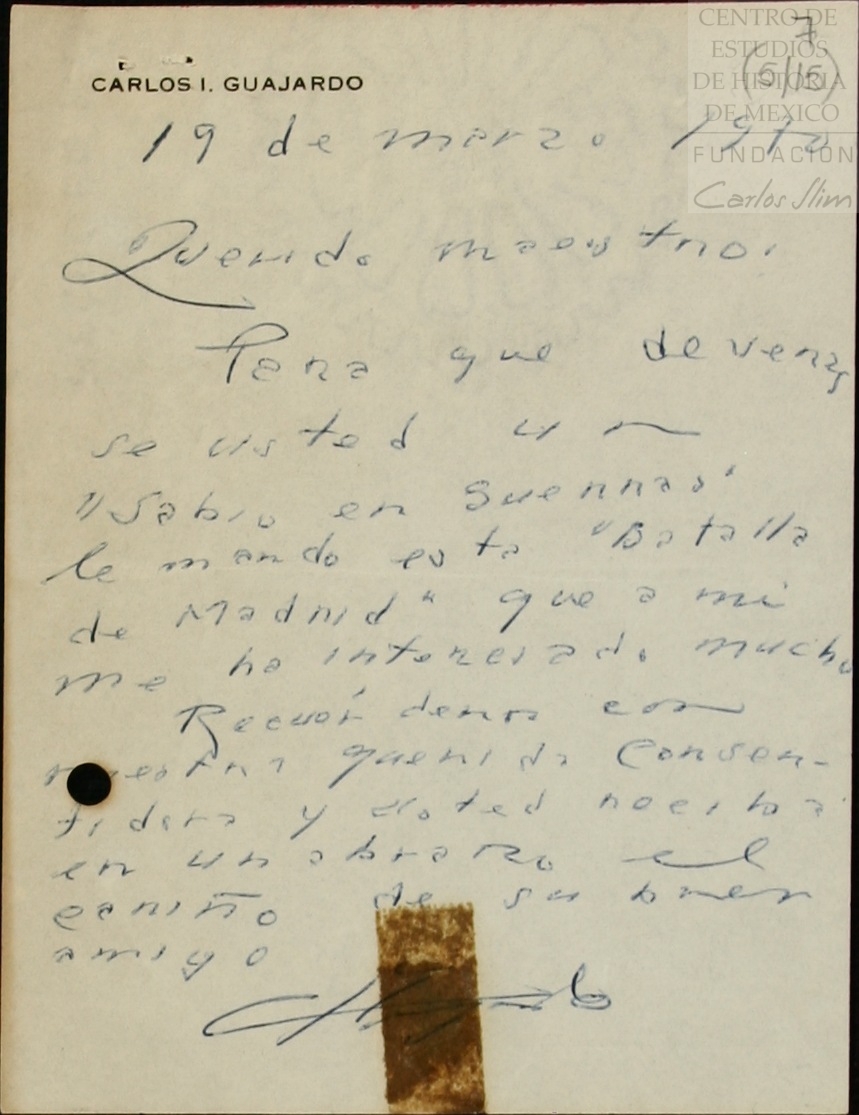 CENTRO DE
ESTUDIOS
DE HISTORIA
DE MEXICO
FUNDACIÓN
Carlos Slim
7
(5/15)
CARLOS I. GUAJARDO
19 de marzo 1970
Querido maestro:
Para que de veras
se usted un
"Sabio en Guerras"
le mando esta "Batalla
de Madrid" que a mi
me ha interesado mucho
Recuérdenos con
nuestra querida Consen-
tidora y usted reciba
en un abrazo el
cariño de su buen
amigo